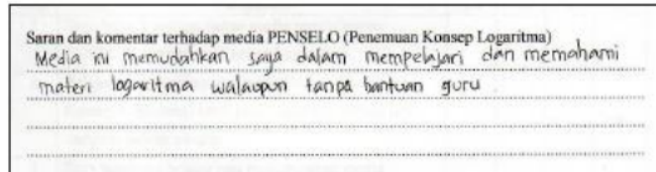 Saran dan komentar terhadap media PENSELO (Penemuan Konsep Logaritma)
Media ini memudahkan saya dalam mempelajari dan memahami
materi logaritma walaupun tanpa bantuan guru